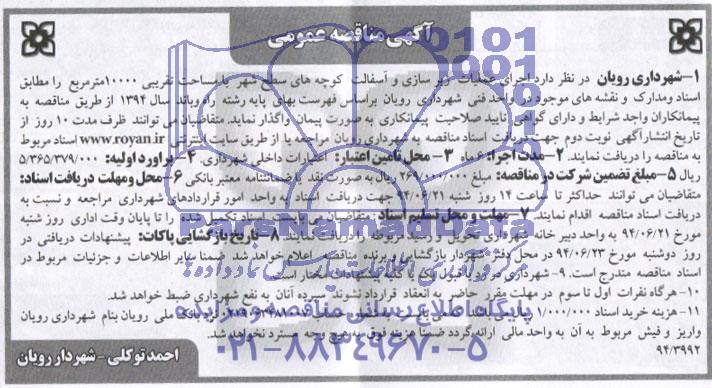 آگهی مناقصه عمومی
۱–شهرداری رویان در نظر دارد اجرای عملیات زیر سازی و آسفالت کوچه های سطح شهر به مساحت تقریبی ۱۰۰۰۰مترمربع را مطابق
اسناد ومدارک و نقشه های موجود در واحد فنی شهرداری رویان براساس فهرست بهای پایه رشته راه وباند سال ۱۳۹۴ از طریق مناقصه به
پیمانکاران واجد شرایط و دارای گواهی تایید صلاحیت پیمانکاری به صورت پیمان واگذار نماید. متقاضیان می توانند ظرف مدت ۱۰ روز از
تاریخ انتشار آگهی نوبت دوم جهت دریافت اسناد مناقصه به شهرداری رویان مراجعه یا از طریق سایت اینترنتی www.royan.ir اسناد مربوط
به مناقصه را دریافت نمایند. ۲–مدت اجرا: ۶ ماه ۳– محل تامین اعتبار: اعتبارات داخلی شهرداری. ۴– برآورد اولیه: ۵/۳۶۵/۳۷۹/۰۰۰
ریال ۵–مبلغ تضمین شرکت در مناقصه: مبلغ ۲۶۹/۰۰۰/۰۰۰ ریال به صورت نقد یا ضمانتنامه معتبر بانکی ۶–محل ومهلت دریافت اسناد:
متقاضیان می توانند حداکثر تا ساعت ۱۴ روز شنبه ۹۴/۰۶/۲۱ جهت دریافت اسناد به واحد امور قراردادهای شهرداری مراجعه و نسبت به
دریافت اسناد مناقصه اقدام نمایند. ۷–مهلت و محل تسلیم اسناد: متقاضیان می بایست اسناد تکمیل شده را تا پایان وقت اداری روز شنبه
مورخ ۹۴/۰۶/۲۱ به واحد دبیر خانه شهرداری تحویل و رسید مربوطه را دریافت نمایند. ۸–تاریخ بازگشایی پاکات: پیشنهادات دریافتی در
روز دوشنبه مورخ ۹۴/۰۶/۲۳ در محل دفتر شهردار بازگشایی و برنده مناقصه اعلام خواهد شد. ضمنا سایر اطلاعات و جزئیات مربوط در
اسناد مناقصه مندرج است. ۹–شهرداری در رد یا قبول یک یا کلیه پیشنهادات مختار است.
۱۰–هرگاه نفرات اول تا سوم در مهلت مقرر حاضر به انعقاد قرارداد نشوند سپرده آنان به نفع شهرداری ضبط خواهد شد.
۱۱–هزینه خرید اسناد ۱/۰۰۰/۰۰۰ بانک ملی رویان بنام شهرداری رویان
واریز و فیش مربوط به آن به واحد مالی ارائه گردد ضمنا هزینه فوق به هیچ وجه مسترد نخواهد شد.
۹۴/۳۹۹۲
احمد توکلی – شهردار رویان
ParsNamadData
پایگاه اطلاع رسانی مناقصه و مزایده
۰۲۱-۸۸۳۴۹۶۷۰-۵